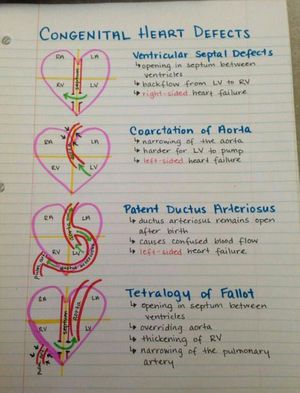 CONGENITAL HEART DEFECTS
Ventricular Septal Defects
↳ opening in septum between
ventricles
↳ backflow from LV to RV
↳ right-sided heart failure
RA LA
RV LV
septum
Coarctation of Aorta
↳ narrowing of the aorta
↳ harder for LV to pump
↳ left-sided heart failure
RA LA
RV LV
Patent Ductus Arteriosus
↳ ductus arteriosus remains open
after birth
↳ causes confused blood flow
↳ left-sided heart failure
RA LA
RV LV
ductus arteriosus
Tetralogy of Fallot
↳ opening in septum between
ventricles
↳ overriding aorta
↳ thickening of RV
↳ narrowing of the pulmonary
artery
RA LA
RV LV
septum
aorta